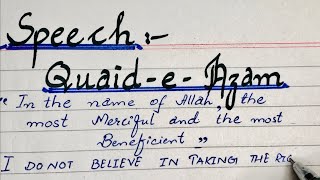 Speech:-
Quaid-e-Azam
"In the name of Allah, the
most Merciful and the most
Beneficient"
I DO NOT BELIEVE IN TAKING THE RIG